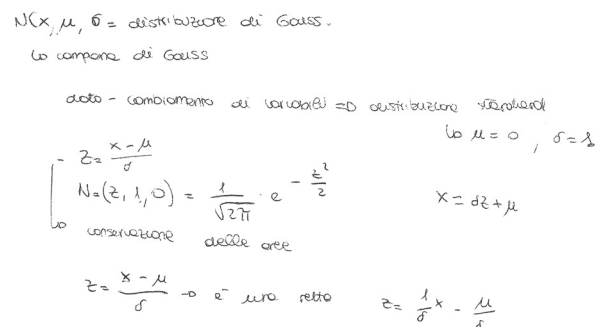 N(x, μ, σ = distribuzione di Gauss.
↳ campana di Gauss
dato - cambiamento di variabili => distribuzione standard
↳ μ = 0 , σ = 1
- z = (x - μ)/σ
N = (z, 1, 0) = 1/√2π · e^(- z²/2)
x = σz + μ
↳ conservazione delle aree
z = (x - μ)/σ → è una retta z = 1/σ x - μ/σ